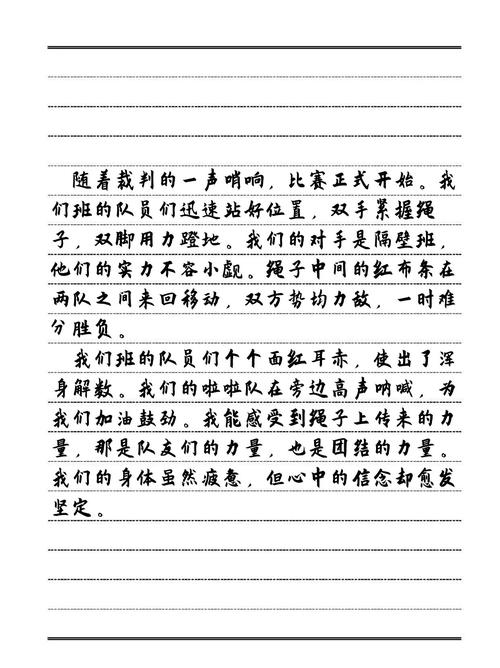 随着裁判的一声哨响，比赛正式开始。我
们班的队员们迅速站好位置，双手紧握绳
子，双脚用力蹬地。我们的对手是隔壁班，
他们的实力不容小觑。绳子中间的红布条在
两队之间来回移动，双方势均力敌，一时难
分胜负。
我们班的队员们个个面红耳赤，使出了浑
身解数。我们的啦啦队在旁边高声呐喊，为
我们加油鼓劲。我能感受到绳子上传来的力
量，那是队友们的力量，也是团结的力量。
我们的身体虽然疲惫，但心中的信念却愈发
坚定。